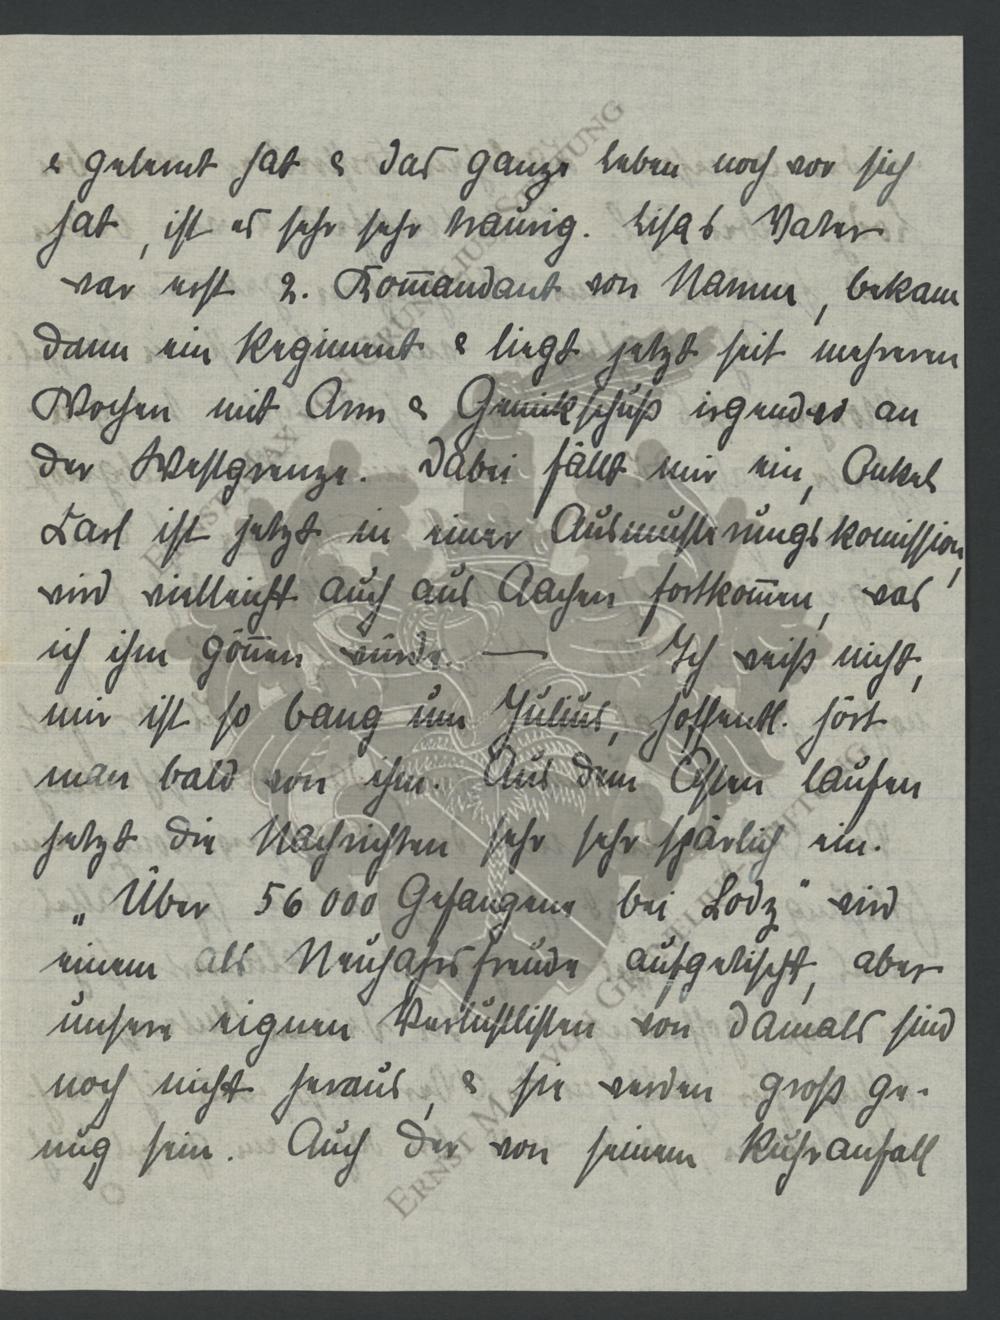 & gelernt hat & das ganze Leben noch vor sich
hat, ist es sehr sehr traurig. Lisas Vater
war erst 2. Kom̄andant von Namur, bekam
dann ein Regiment & liegt jetzt seit mehreren
Wochen mit Arm & Genickschuß irgendwo an
der Westgrenze. Dabei fällt mir ein, Onkel
Carl ist jetzt in einer Ausmusterungskomission,
wird vielleicht auch aus Aachen fortkom̄en, was
ich ihm gön̄en würde. — Ich weiß nicht,
mir ist so bang um Julius, hoffentl. hört
man bald von ihm. Aus dem Osten laufen
jetzt die Nachrichten sehr sehr spärlich ein.
„Über 56 000 Gefangene bei Lodz" wird
einem als Neujahrsfreude aufgetischt, aber
unsere eignen Verlustlisten von damals sind
noch nicht heraus, & sie werden groß ge-
nug sein. Auch der von seinem Ruhranfall